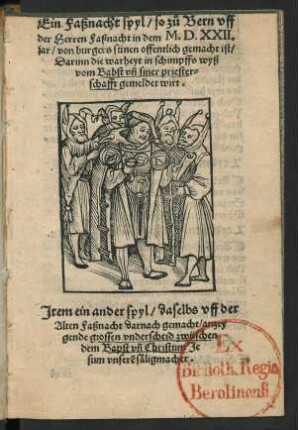 Ein Faßnacht spyl / so zů Bern vff
der Herren Faßnacht in dem M. D. XXII.
Jar / von burgers sünen offentlich gemacht ist /
Darinn die warheyt in schimpffs wyß
vom Babst vñ siner priester-
schafft gemeldet wirt.
Item ein ander spyl / daselbs vff der
Alten Faßnacht darnach gemacht / anzey
gende grossen vnderscheid zwischen
dem Bapst vñ Christum Je
sum vnserẽ säligmacher.
Ex
Biblioth. Regia
Berolinensi.